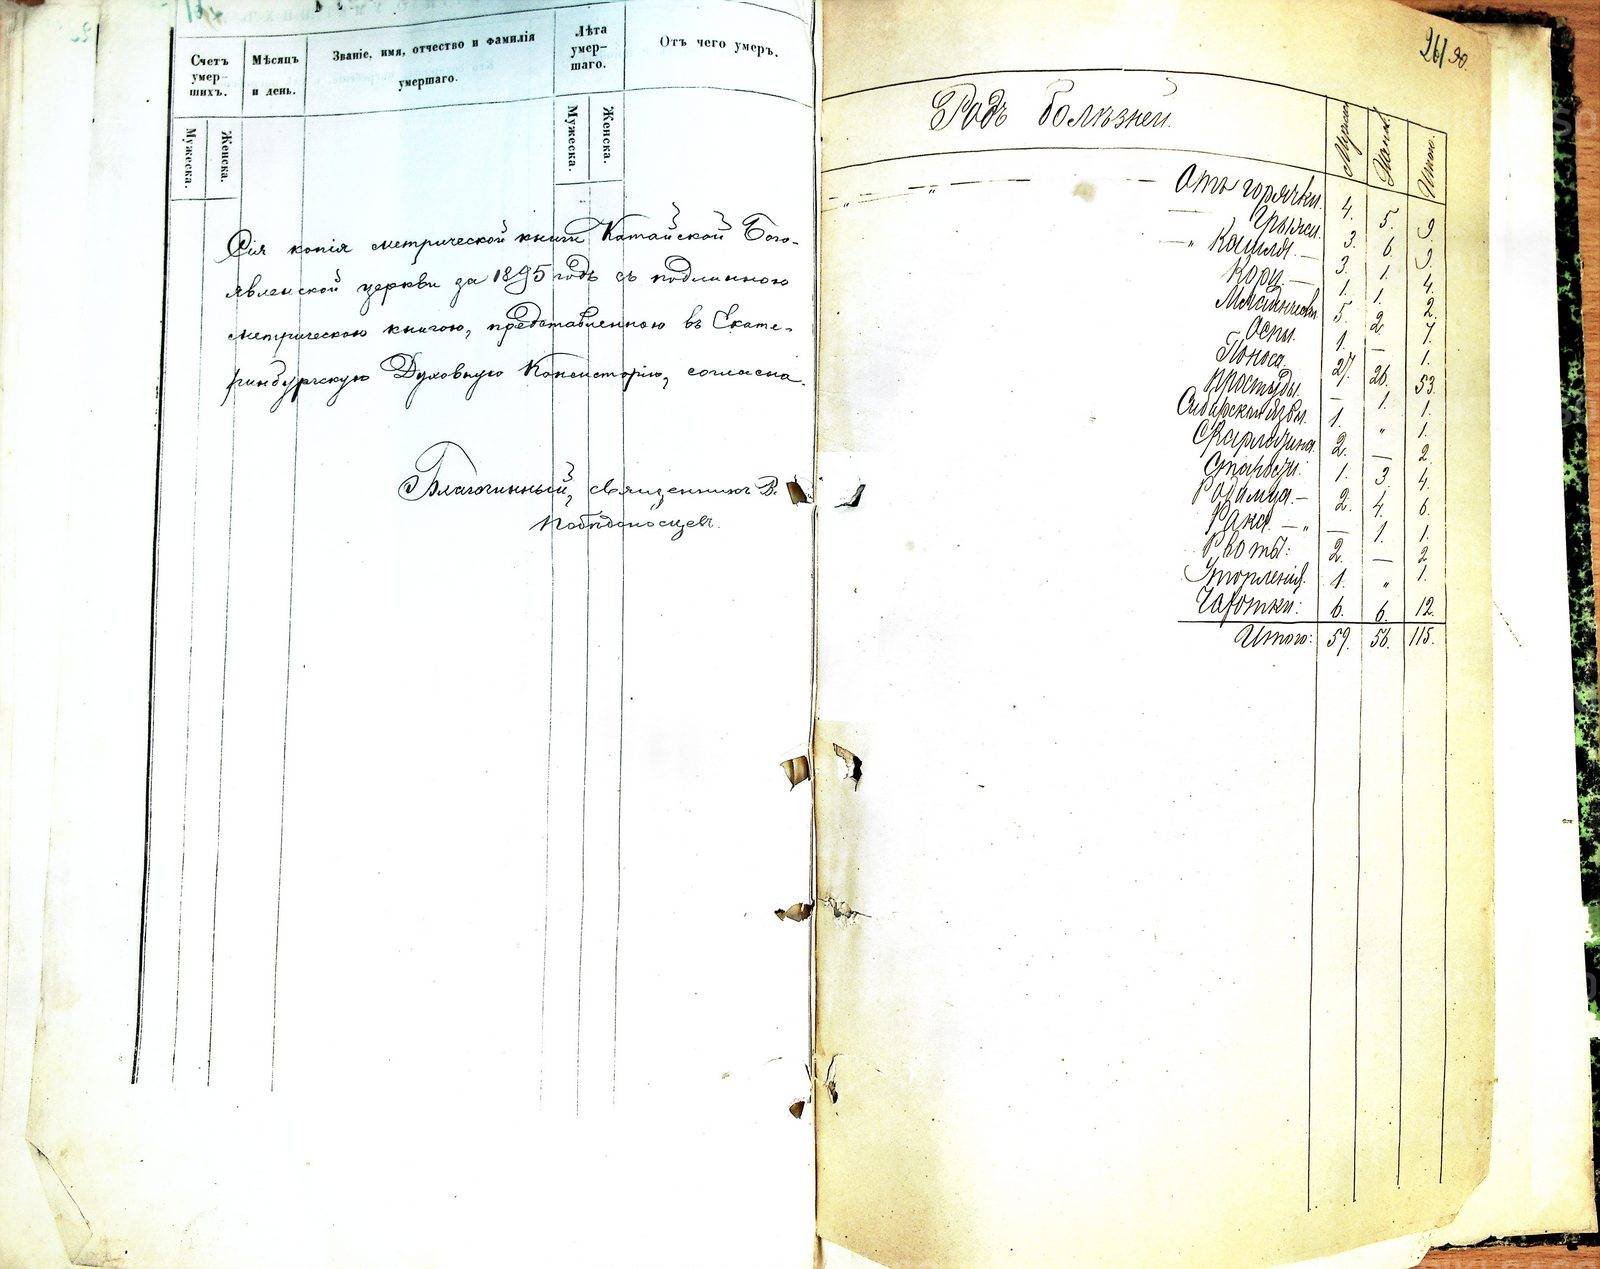 Счетъ умер-
шихъ.
Мѣсяцъ
и день.
Званіе, имя, отчество и фамилія
умершаго.
Лѣта
умер-
шаго.
Отъ чего умеръ.
Мужеска.
Женска.
Мужеска.
Женска.
Сія копія метрической книги Катайской Бого-
явленской церкви за 1895 годъ съ подлинною
метрическою книгою, представленною въ Екате-
ринбургскую Духовную Консисторію, согласна.
Благочинный, священникъ В.
Побѣдоносцевъ.
261 30.
Родъ болѣзней. Итого.
Отъ горячки. 4. 5. 9.
Грыжи. 3. 6. 9.
" Кашля. — 3. 1. 4.
Кори. — 1. 1. 2.
Младенческой 5. 2. 7.
Оспы. 1. — 1.
Поноса. 27. 26. 53.
Простуды. — 1. 1.
Сибирской язвы. 1. " 1.
Скарлатина. 2. — 2.
Старости. 1. 3. 4.
Родимца. — 2. 4. 6.
Рака. — " — 1. 1.
Рвоты: 2. — 2
Утопленія. 1. " 1.
Чахотки: 6. 6. 12.
Итого: 59. 56. 115.